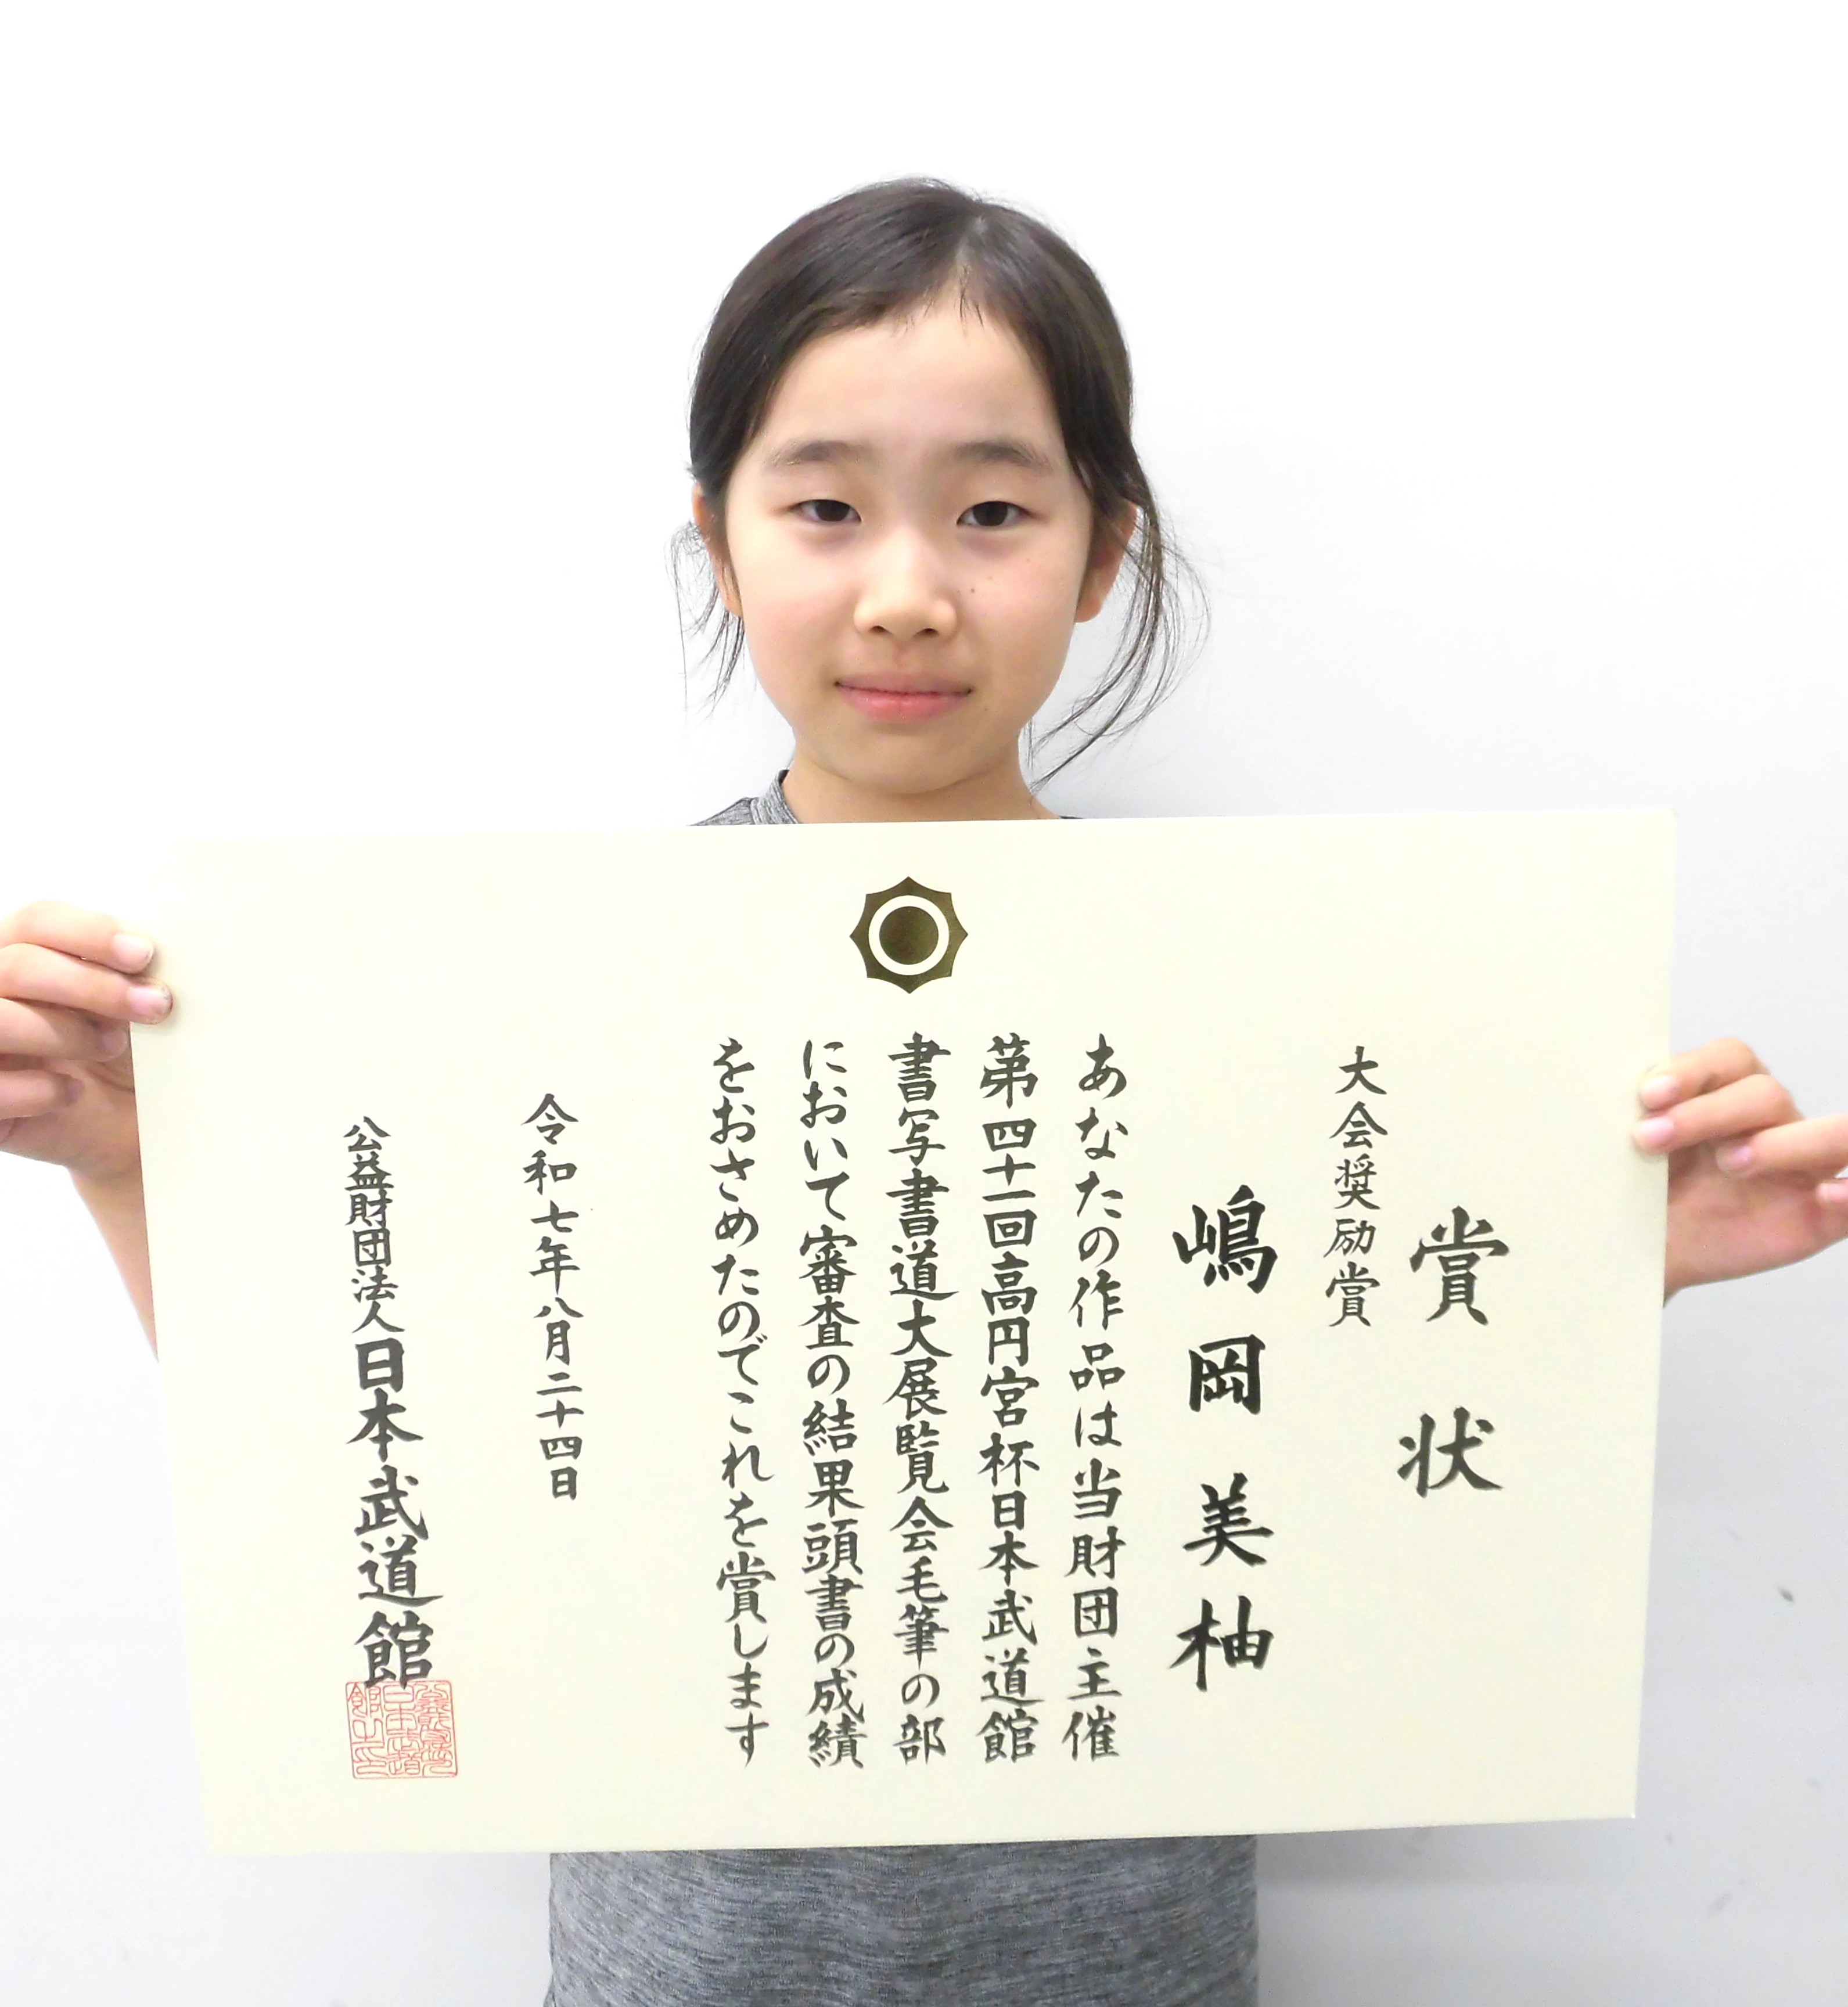 賞状
大会奨励賞
嶋岡美柚
あなたの作品は当財団主催
第四十一回高円宮杯日本武道館
書写書道大展覧会毛筆の部
において審査の結果頭書の成績
をおさめたのでこれを賞します
令和七年八月二十四日
公益財団法人日本武道館